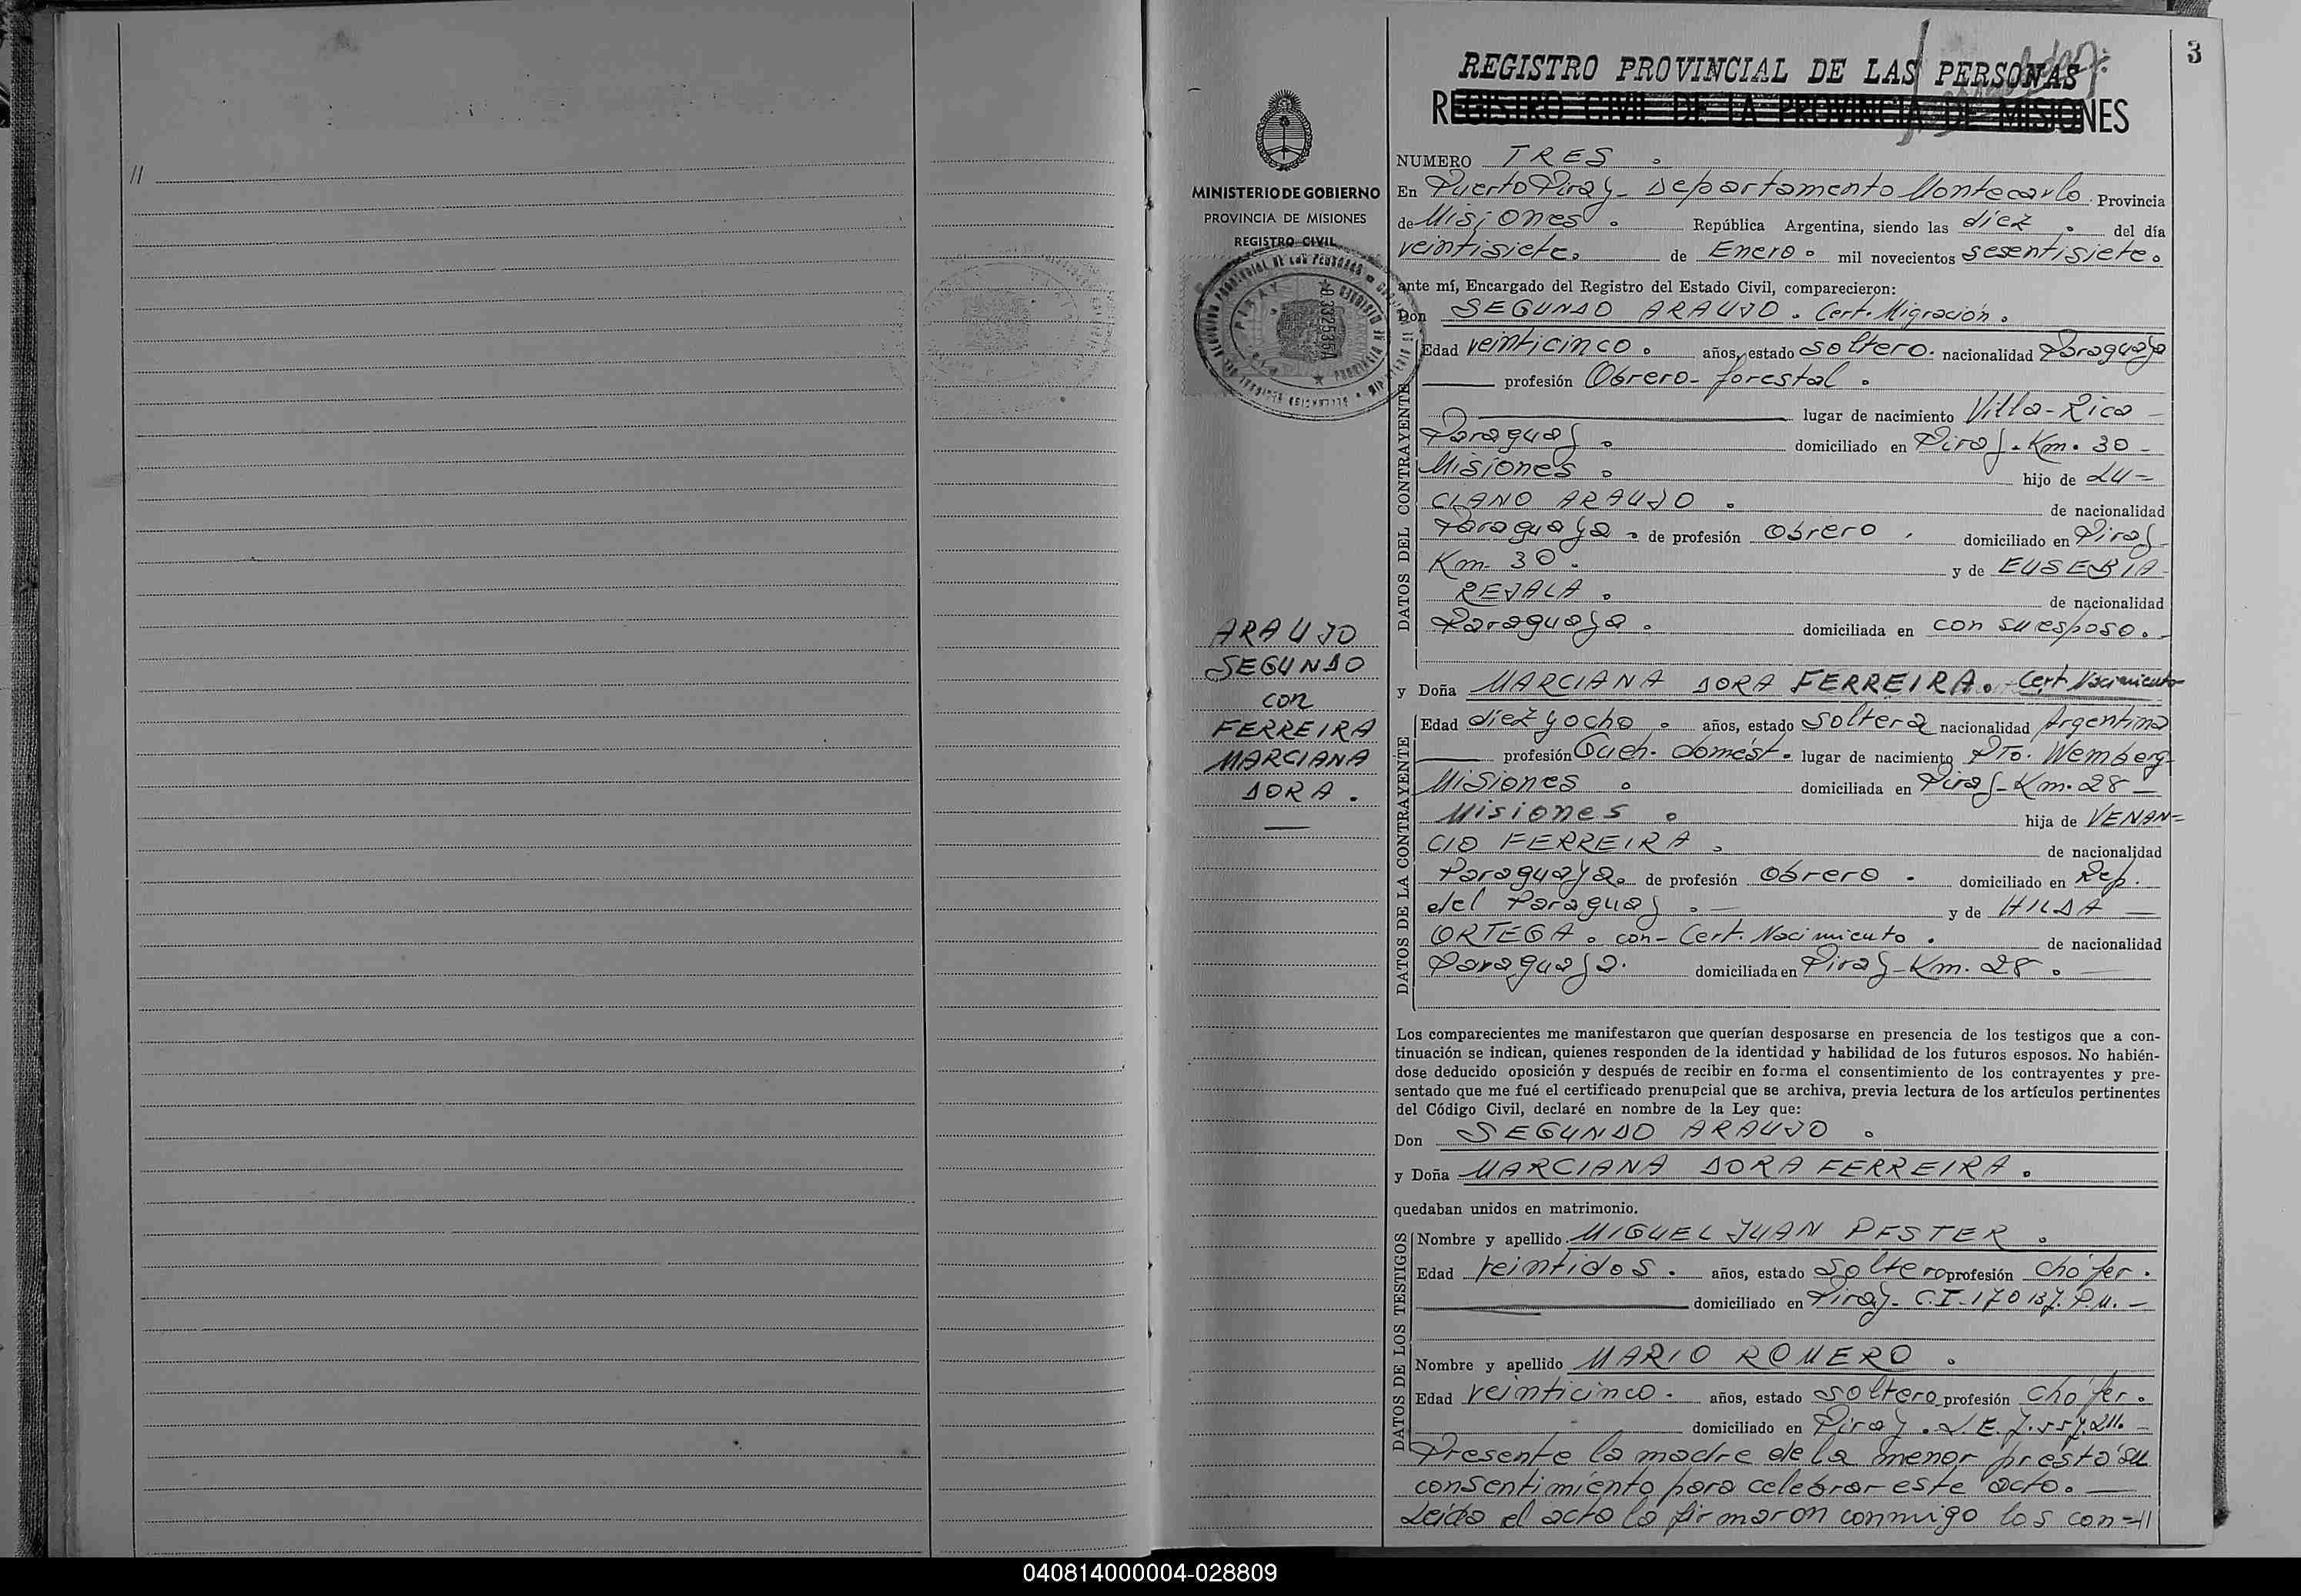 11
3
REGISTRO PROVINCIAL DE LAS PERSONAS
REGISTRO CIVIL DE LA PROVINCIA DE MISIONES
MINISTERIO DE GOBIERNO
PROVINCIA DE MISIONES
REGISTRO CIVIL
ARAUJO
SEGUNDO
con
FERREIRA
MARCIANA
DORA.
NUMERO TRES.
En Puerto Piray - Departamento Montecarlo. Provincia
de Misiones. República Argentina, siendo las diez. del día
veintisiete. de Enero. mil novecientos sesentisiete.
ante mí, Encargado del Registro del Estado Civil, comparecieron:
Don SEGUNDO ARAUJO. Cert. Migración.
DATOS DEL CONTRAYENTE
Edad veinticinco. años, estado soltero. nacionalidad Paraguaya
profesión Obrero-forestal.
lugar de nacimiento Villa-Rica-
Paraguay. domiciliado en Piray. Km. 30-
Misiones. hijo de LU=
CIANO ARAUJO. de nacionalidad
Paraguaya. de profesión Obrero. domiciliado en Piray-
Km. 30. y de EUSEBIA
REJALA. de nacionalidad
Paraguaya. domiciliada en con su esposo.-
y Doña MARCIANA DORA FERREIRA. Cert Nacimiento
DATOS DE LA CONTRAYENTE
Edad diez y ocho. años, estado soltera nacionalidad Argentina
profesión Queh. domést. lugar de nacimiento Pto. Wemberg-
Misiones. domiciliada en Piray-Km. 28-
Misiones. hija de VENAN=
CIO FERREIRA. de nacionalidad
Paraguaya. de profesión Obrero. domiciliado en Rep.
del Paraguay.- y de HILDA -
ORTEGA. con- Cert. Nacimiento. de nacionalidad
Paraguaya. domiciliada en Piray-Km. 28.-
Los comparecientes me manifestaron que querían desposarse en presencia de los testigos que a con-
tinuación se indican, quienes responden de la identidad y habilidad de los futuros esposos. No habién-
dose deducido oposición y después de recibir en forma el consentimiento de los contrayentes y pre-
sentado que me fué el certificado prenupcial que se archiva, previa lectura de los artículos pertinentes
del Código Civil, declaré en nombre de la Ley que:
Don SEGUNDO ARAUJO.
y Doña MARCIANA DORA FERREIRA.
quedaban unidos en matrimonio.
DATOS DE LOS TESTIGOS
Nombre y apellido MIGUEL JUAN PFSTER.
Edad veintidos. años, estado Soltero profesión chófer.
domiciliado en Piray- C.I-170137. P.M.-
Nombre y apellido MARIO ROMERO.
Edad veinticinco. años, estado soltero profesión chófer.
domiciliado en Piray. L.E. 7.557.211.-
Presente la madre de la menor prestó su
consentimiento para celebrar este acto.-
Leída el acta la firmaron conmigo los con=11
040814000004-028809